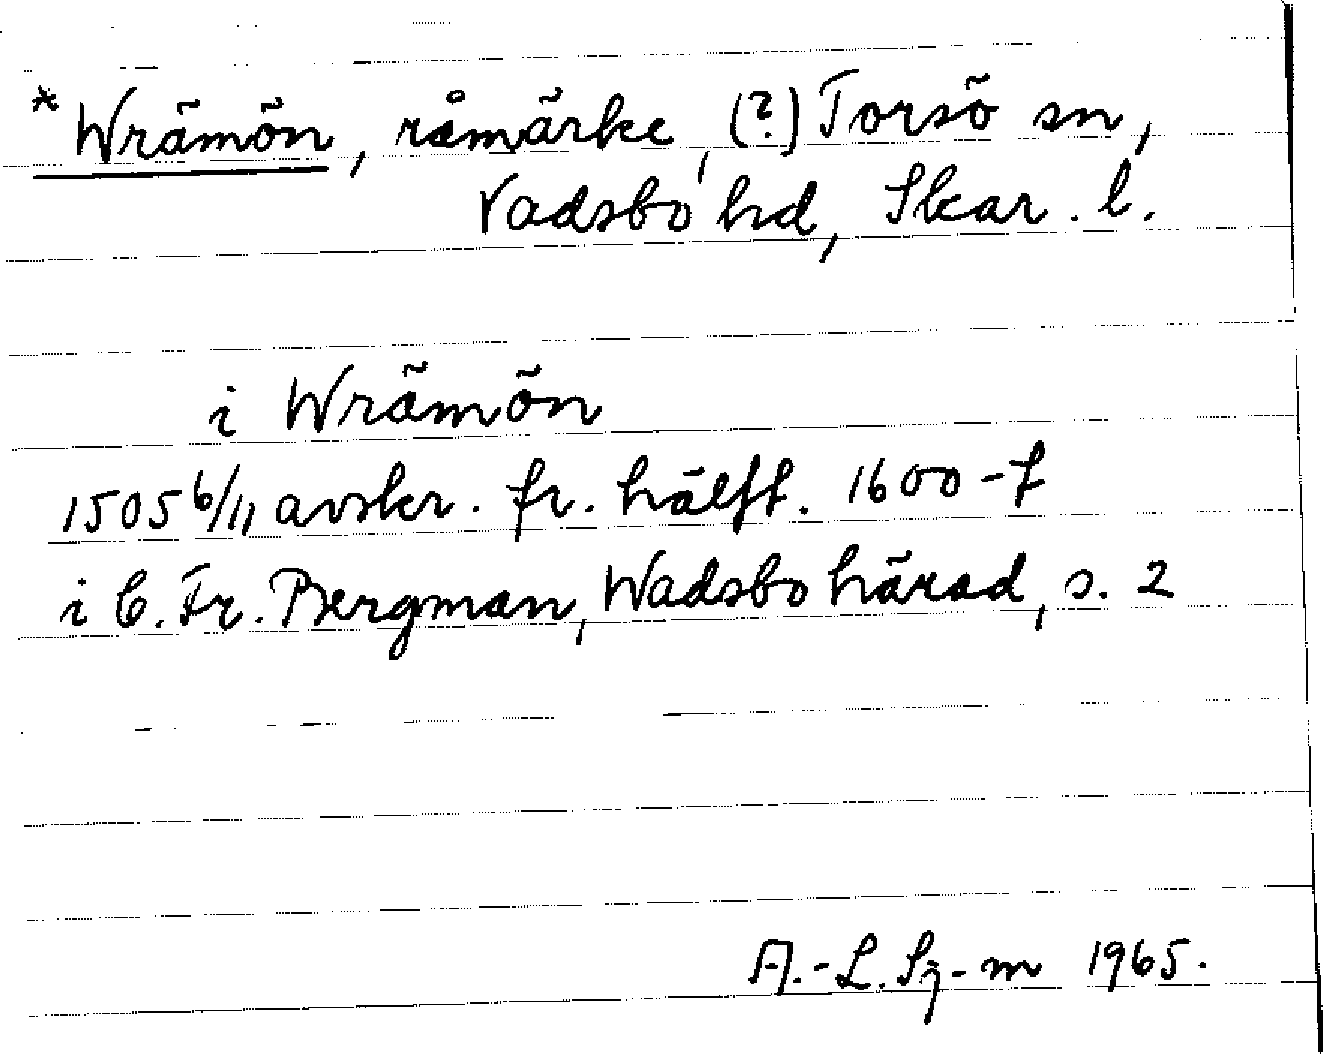 *Wrämön, råmärke, (?) Torsö sn,
Vadsbo hd, Skar. l.
i Wrämön
1505 6/11 avskr. fr. hälft. 1600-t
i C. Fr. Bergman, Wadsbo härad, s. 2
A.-L. Sj-m 1965.